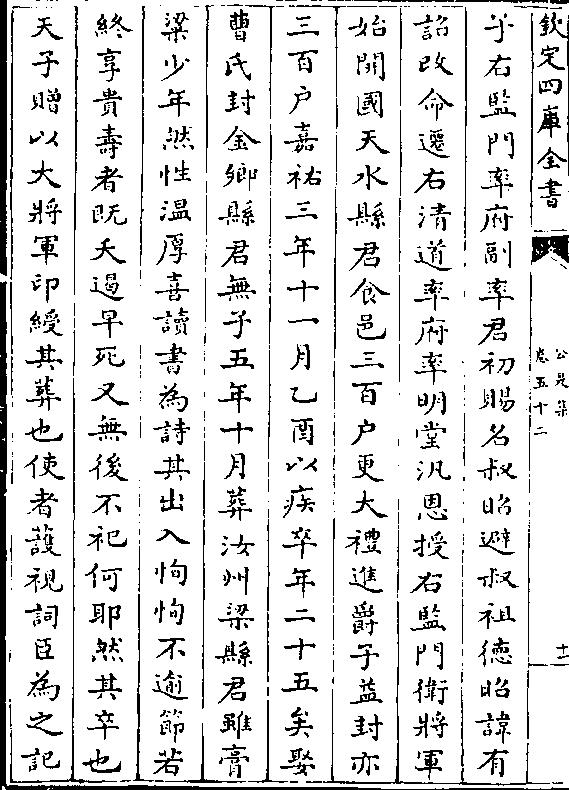 欽定四庫全書
公是集
卷五十二
十一
乎右監門率府副率君初賜名叔昭避叔祖德昭諱有
詔改命遷右清道率府率明堂汎恩授右監門衛將軍
始開國天水縣君食邑三百户更大禮進爵子益封亦
三百户嘉祐三年十一月乙酉以疾卒年二十五矣娶
曹氏封金鄉縣君無子五年十月葬汝州梁縣君雖膏
粱少年然性温厚喜讀書為詩其出入恂恂不逾節若
終享貴壽者既夭遏早死又無後不祀何耶然其卒也
天子贈以大將軍印綬其葬也使者護視詞臣為之記